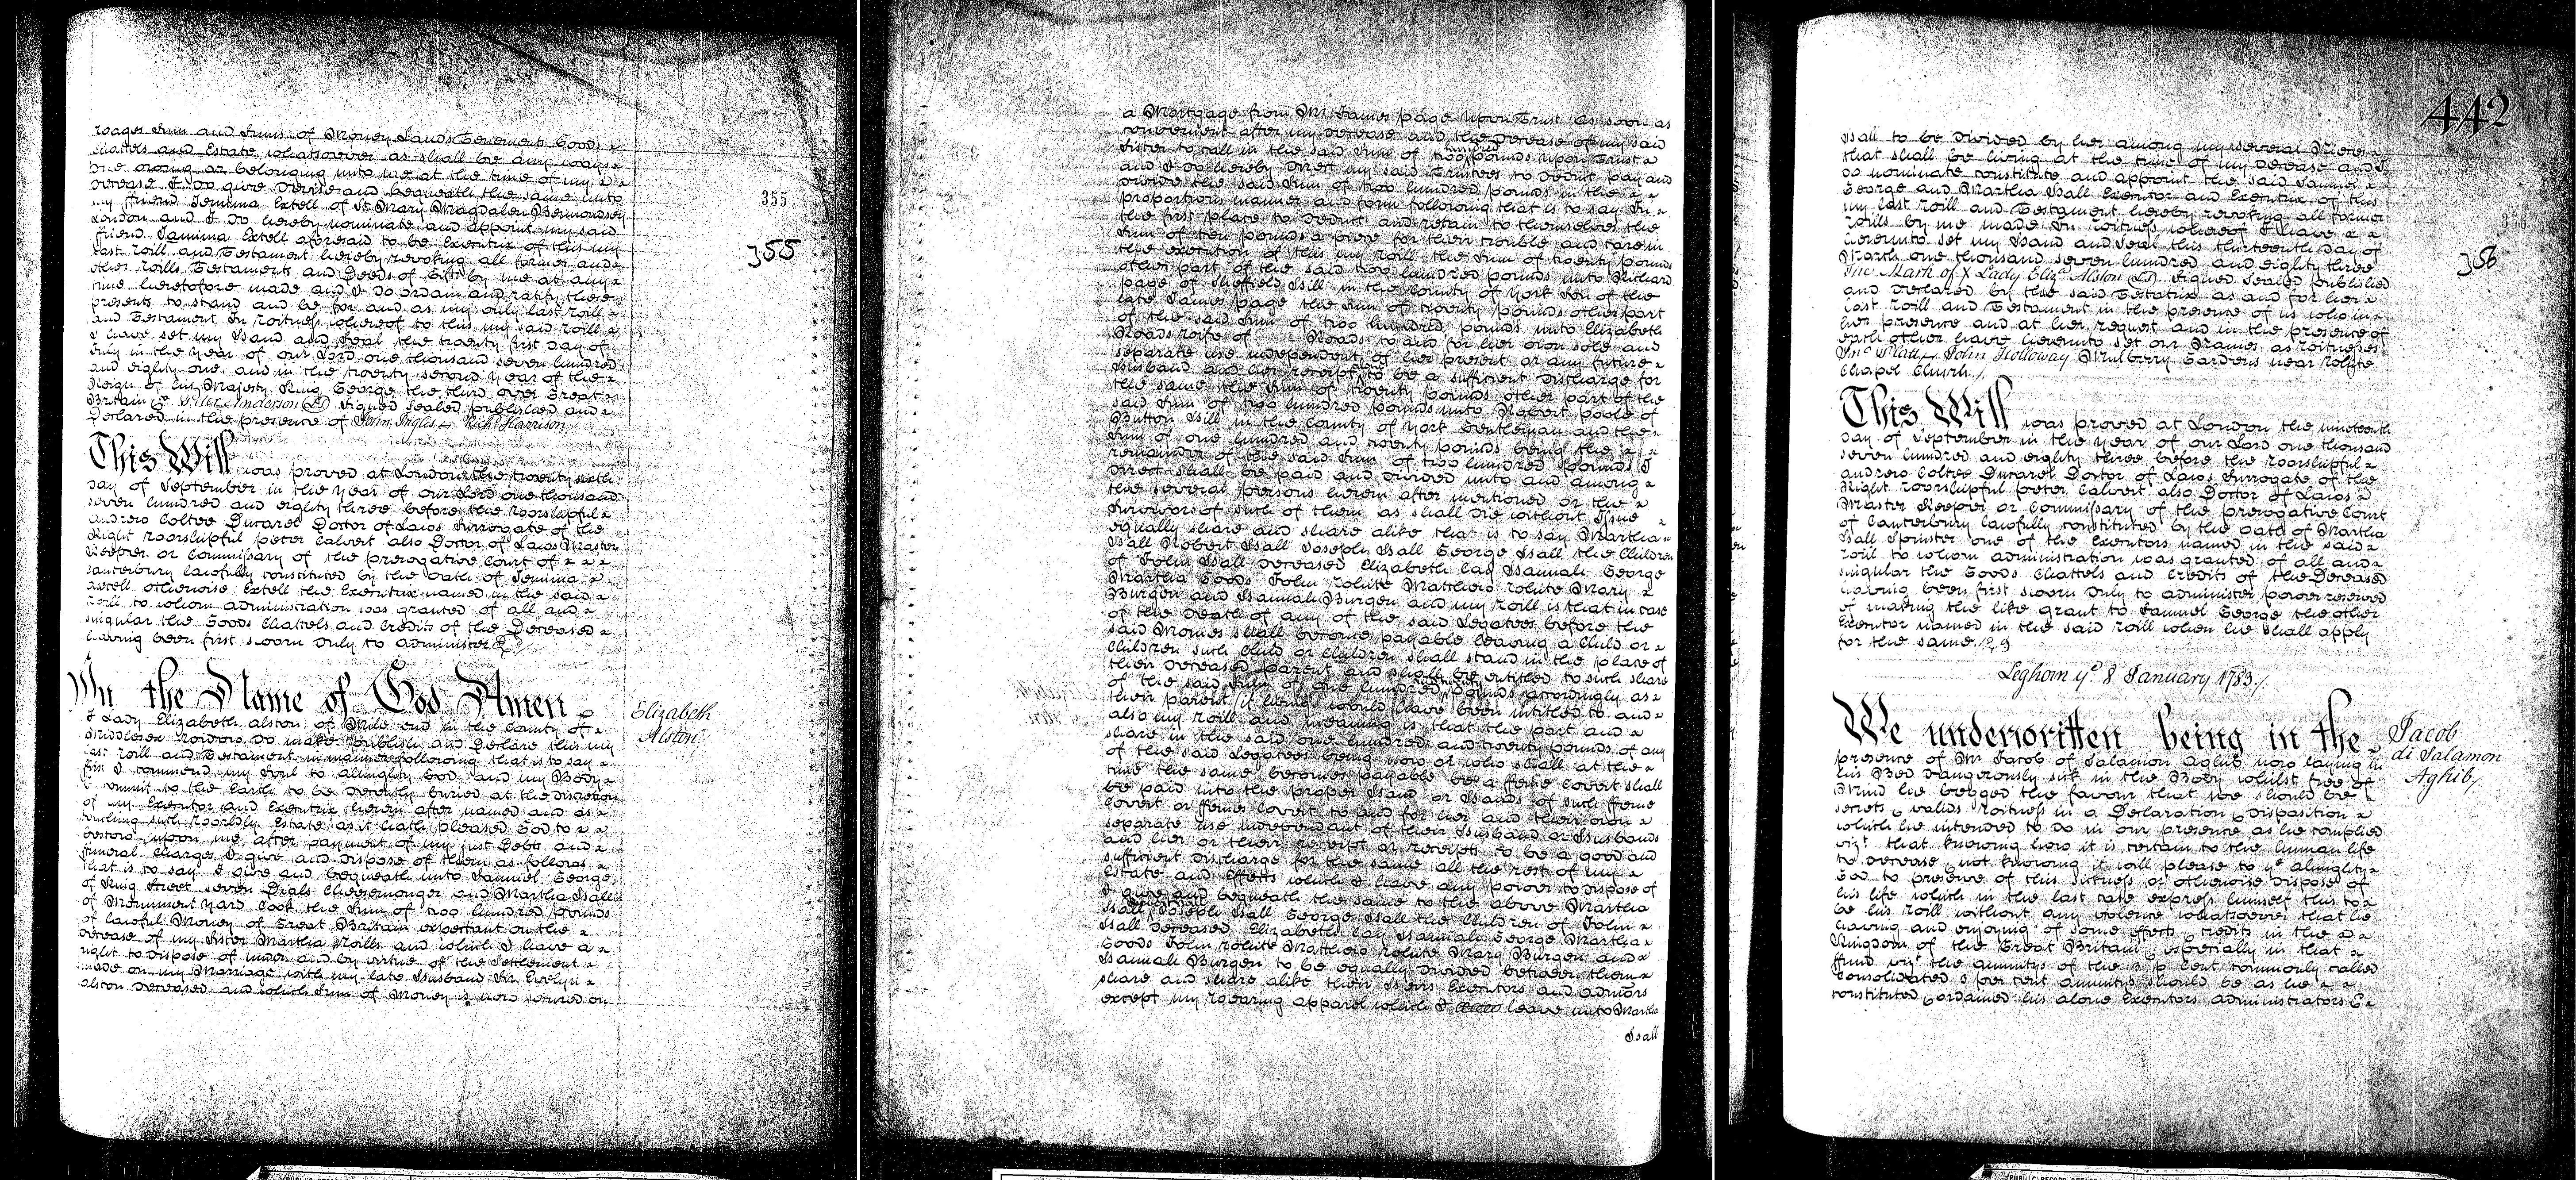 wages Sum and Sums of Money Lands Tenements Goods
Chattels and Estate whatsoever as shall be any ways
due owing or belonging unto me at the time of my
decease I do give devise and bequeath the same unto
my friend Jemima Extell of St Mary Magdalen Bermondsey
London and I do hereby nominate and appoint my said
friend Jamima Extell aforesaid to be Executrix of this my
last Will and Testament hereby revoking all former and
other Wills Testaments and Deeds of Gift by me at any
time heretofore made and I do ordain and ratify these
presents to stand and be for and as my only last Will
and Testament In Witness whereof to this my said Will
I have set my Hand and Seal the twenty first day of
in the Year of our Lord one thousand seven hundred
and eighty one and in the twenty second Year of the
Reign of his Majesty King George the third over Great
Britain &c. Peter Anderson (LS) Signed Sealed published and
Declared in the presence of John Inglis Richd Harrison
355
355
This Will was proved at London the twenty sixth
day of September in the Year of our Lord one thousand
seven hundred and eighty three before the Worshipful
Andrew Coltee Ducarel Doctor of Laws Surrogate of the
Right Worshipful Peter Calvert also Doctor of Laws Master
Keeper or Commissary of the prerogative Court of
Canterbury lawfully constituted by the Oath of Jemima
Axtell otherwise Extell the Executrix named in the said
Will to whom administration was granted of all and
singular the Goods Chattels and Credits of the Deceased
having been first sworn duly to administer
In the Name of God Amen
Elizabeth
Alston
I Lady Elizabeth Alston of Mile end in the County of
Middlesex Widow do make publish and Declare this my
last Will and Testament in manner following that is to say
first I commend my Soul to almighty God and my Body
I commit to the Earth to be decently buried at the discretion
of my Executor and Executrix herein after named and as
touching such Worldly Estate as it hath pleased God to
bestow upon me after payment of my just Debts and
funeral Charges I give and dispose of them as follows
that is to say I give and bequeath unto Samuel George
of King Street seven Dials Cheesemonger and Martha Hall
of Monument Yard Cook the Sum of two hundred pounds
of lawful Money of Great Britain expectant on the
decease of my Sister Martha Wills and which I have a
right to dispose of under and by virtue of the Settlement
made on my Marriage with my late Husband Sir Evelyn
Alston deceased and which Sum of Money is now secured on
a Mortgage from Mr James Page Upon Trust as soon as
convenient after my decease and the decease of my said
Sister to call in the said Sum of two hundred pounds upon Trust
and I do hereby direct my said Trustees to deduct pay and
divide the said Sum of two hundred pounds in the
proportions manner and form following that is to say In
the first place to deduct and retain to themselves the
Sum of ten pounds a piece for their trouble and care in
the execution of this my Will the Sum of twenty pounds
other part of the said two hundred pounds unto Richard
page of Sheffield Hill in the County of York Son of the
late James page the Sum of twenty pounds other part
of the said Sum of two hundred pounds unto Elizabeth
Woads wife of Woads to and for her own sole and
separate use independent of her present or any future
Husband and her receipt alone to be a sufficient discharge for
the same the Sum of twenty pounds other part of the
said Sum of two hundred pounds unto Robert poole of
Button Hill in the County of York Gentleman and the
Sum of one hundred and twenty pounds being the
remainder of the said Sum of two hundred pounds I
direct shall be paid and divided unto and among
the several persons herein after mentioned or the
Survivors of such of them as shall die without Issue
equally share and share alike that is to say Martha
Hall Robert Hall Joseph Hall George Hall the Children
of John Hall deceased Elizabeth Cay Hannah George
Martha Goods John White Matthew White Mary
Burgen and Hannah Burgen and my Will is that in case
of the Death of any of the said Legatees before the
said Monies shall become payable leaving a Child or
Children such Child or Children shall stand in the place of
their deceased parent and shall be entitled to such share
of the said Sum of one hundred and twenty pounds accordingly as
their parent if living would have been intitled to and
also my Will and meaning is that the part and
share in the said one hundred and twenty pounds of any
of the said Legatees being now or who shall at the
time the same becomes payable be a feme Covert shall
be paid into the proper Hand or Hands of such feme
Covert or femes Covert to and for her and their own
separate use independant of their Husband or Husbands
and her or their receipt or receipts to be a good and
sufficient discharge for the same all the rest of my
Estate and Effects which I have any power to dispose of
I give and bequeath the same to the above Martha
Hall Joseph Hall George Hall the Children of John
Hall deceased Elizabeth Cay Hannah George Martha
Goods John White Matthew White Mary Burgen and
Hannah Burgen to be equally divided between them
share and share alike their Heirs Executors and admors
except my wearing apparel which I leave unto Martha
Hall
442
356
Hall to be divided by her among my several Nieces
that shall be living at the time of my decease and I
do nominate constitute and appoint the said Samuel
George and Martha Hall Executor and Executrix of this
my last Will and Testament hereby revoking all former
Wills by me made In Witness whereof I have
hereunto set my Hand and Seal this thirteenth day of
March one thousand seven hundred and eighty three
The Mark of X Lady Elizh Alston (LS) Signed Sealed published
and declared by the said Testatrix as and for her
last Will and Testament in the presence of us who in
her presence and at her request and in the presence of
each other have hereunto set our Names as Witnesses
John Holloway Mulberry Gardens near White
Chapel Church
This Will was proved at London the nineteenth
day of September in the Year of our Lord one thousand
seven hundred and eighty three before the Worshipful
Andrew Coltee Ducarel Doctor of Laws Surrogate of the
Right Worshipful Peter Calvert also Doctor of Laws
Master Keeper or Commissary of the prerogative Court
of Canterbury lawfully constituted by the Oath of Martha
Hall Spinster one of the Executors named in the said
Will to whom administration was granted of all and
singular the Goods Chattels and Credits of the Deceased
having been first sworn duly to administer power reserved
of making the like grant to Samuel George the other
Executor named in the said Will when he shall apply
for the same
Leghorn ye 8 January 1783
We underwritten being in the
Jacob
di Salamon
Aghib
presence of Mr Jacob of Salamon Aghib now laying in
his Bed dangerously sick in the Body whilst free of
Mind he begged the favour that we should be
secrets & valids Witness in a Declaration & disposition
which he intended to do in our presence as he complied
vizt that knowing how it is certain to the human life
to decease & not knowing it will please to ye almighty
God to presence of this sickness or otherwise dispose of
his life which in the last case express himself this to
be his Will without any violence whatsoever that he
having and enjoying of some effects & credits in the
Kingdom of the Great Britain & especially in that
fund vizt the annuitys of the 3 p Cent commonly called
Consolidated 3 per cent annuitys should be as he
constituted & ordained his alone Executors administrators &